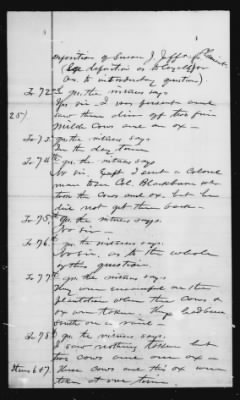 deposition of Susan J. Jeff
(See deposition as to
as to introductory questions)
To 72nd qu. the witness says
Yes sir - I was present and
25) saw them drive off two fine
Milch Cows and an ox -
To 73rd qu. the witness says
In the day time
To 74th qu. the witness says
No sir. Capt. J. sent a Colored
man to Col. Blackburn who
took the Cows and ox, but he
did not get them back -
To 75th qu. the witness says.
No sir -
To 76th qu. the witness says.
No sir, as to the whole
of the question.
To 77th qu. the witness says
They were encamped on the
plantation when these cows &
ox were taken. They had been
on a raid -
To 78th qu. the witness says.
I saw nothing taken but
two cows and one ox -
Items 6 & 7. These cows and this ox were
taken at one time.